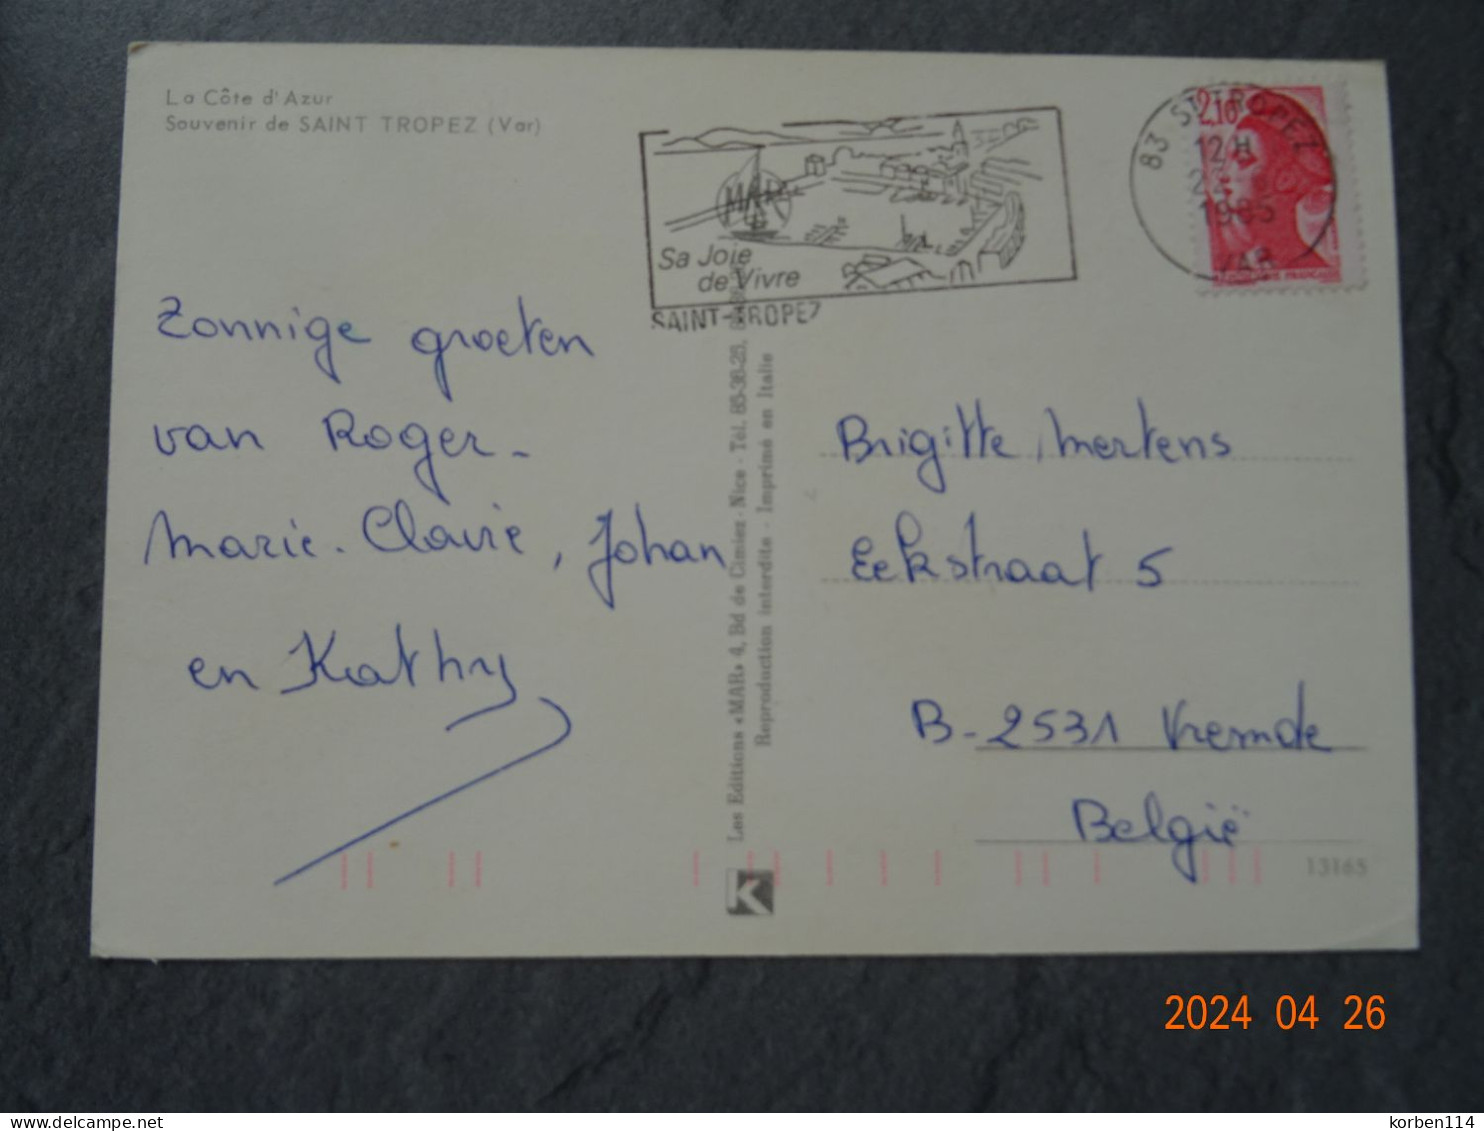 La Côte d'Azur
Souvenir de SAINT TROPEZ (Var)
Sa Joie
de Vivre
SAINT-TROPEZ
83 ST TROPEZ
12H
1985
VAR
2,10
Zonnige groeten
van Roger-
Marie-Claire, Johan
en Kathy
Les Editions «MAR» 4, Bd de Cimiez - Nice - Tél. 85-38-28.
Reproduction interdite - Imprimé en Italie
Brigitte Mertens
Eekstraat 5
B-2531 Vremde
België
K
13165
2024 04 26
korben114